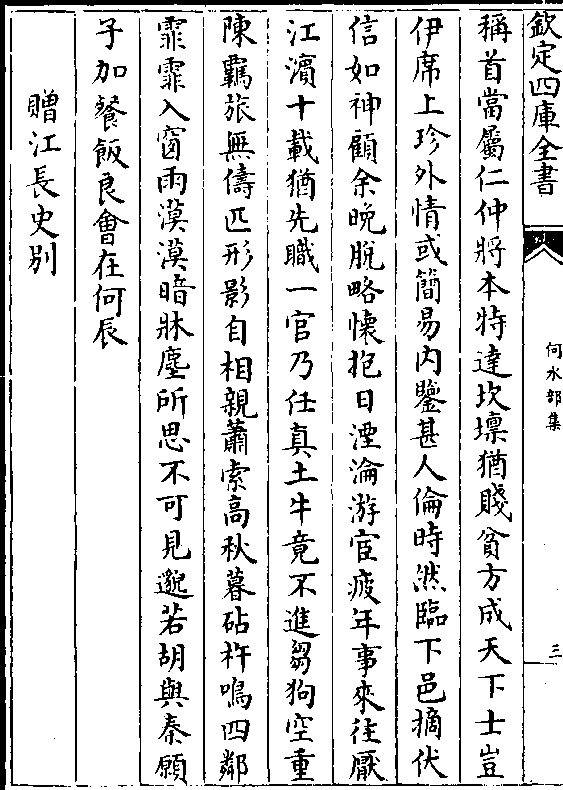 欽定四庫全書
何水部集
三
稱首當屬仁仲將本特達坎壈猶賤貧方成天下士豈
伊席上珍外情或簡易内鑒甚人倫時然臨下邑摘伏
信如神顧余晚脫略懷抱日湮淪游宦疲年事來往厭
江濆十載猶先職一官乃任真土牛竟不進芻狗空重
陳羈旅無儔匹形影自相親蕭索高秋暮砧杵鳴四鄰
霏霏入窗雨漠漠暗牀塵所思不可見邈若胡與秦願
子加餐飯良會在何辰
贈江長史别